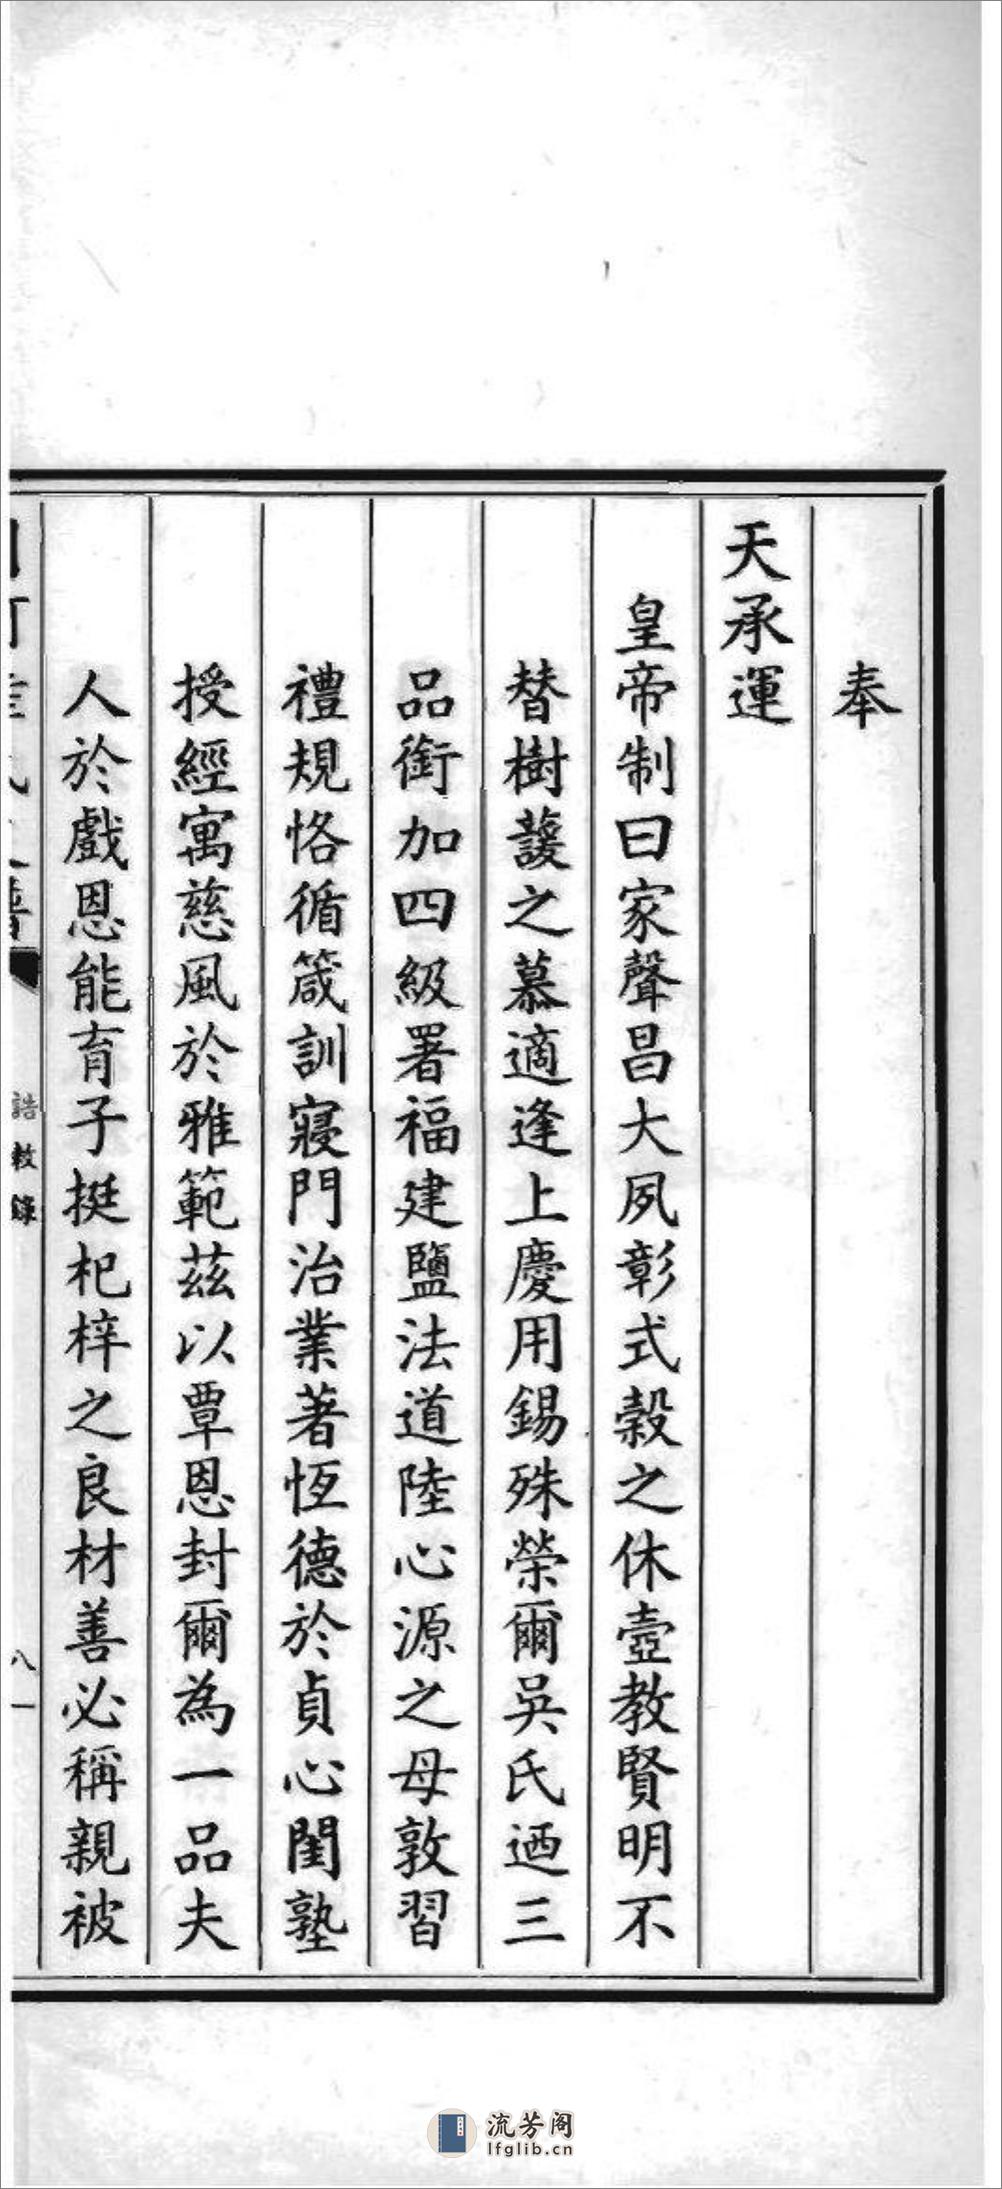 奉
天承運
皇帝制曰家聲昌大夙彰式榖之休壼教賢明不
替樹蘐之慕適逢上慶用錫殊榮爾吳氏迺三
品銜加四級署福建鹽法道陸心源之母敦習
禮規恪循箴訓寢門治業著恆德於貞心閨塾
授經寓慈風於雅範茲以覃恩封爾為一品夫
人於戲恩能育子挺杞梓之良材善必稱親被
誥敕錄
八一
流芳阁
lfglib.cn